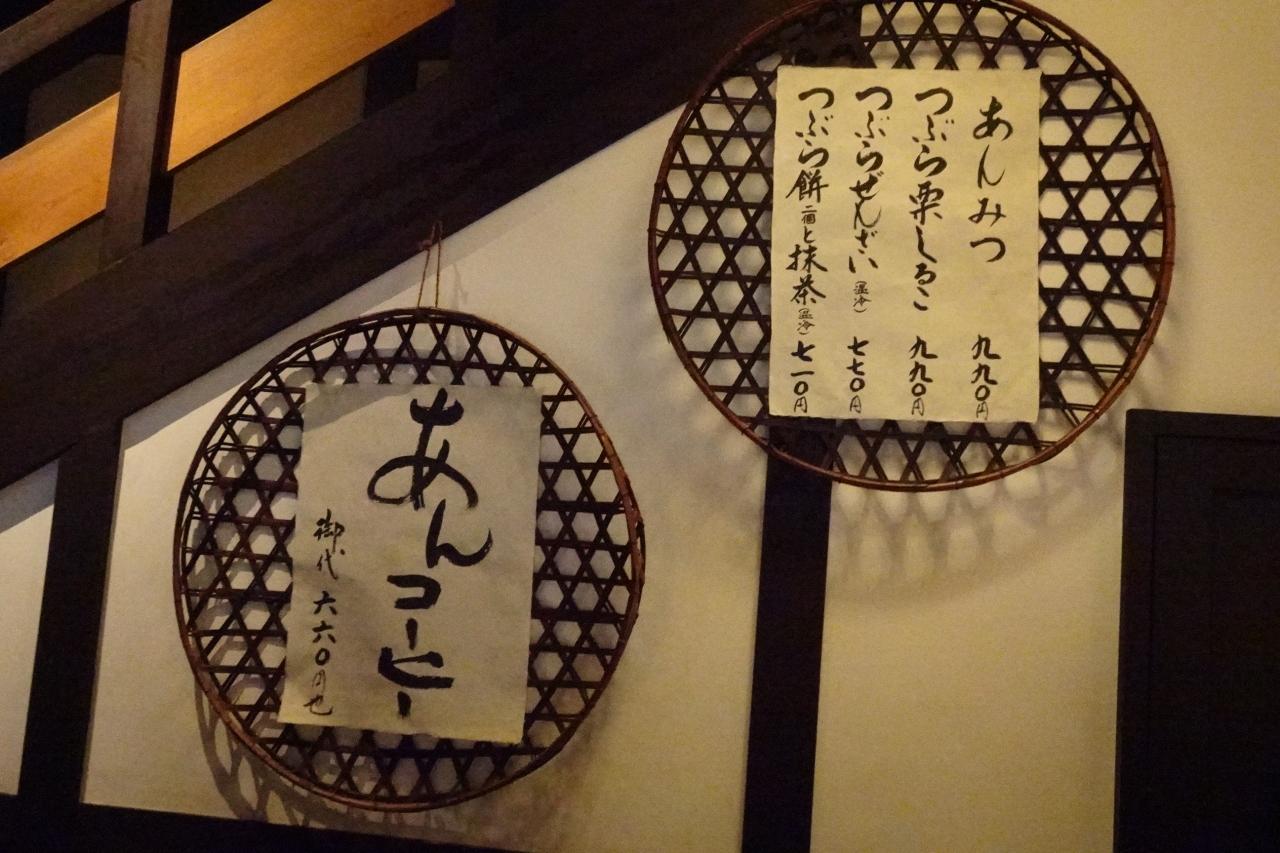 あんみつ 九九〇円
つぶら栗しるこ 九九〇円
つぶらぜんざい（温冷） 七七〇円
つぶら餅二個と抹茶（温冷） 七一〇円
あんコーヒー
御代 六六〇円也